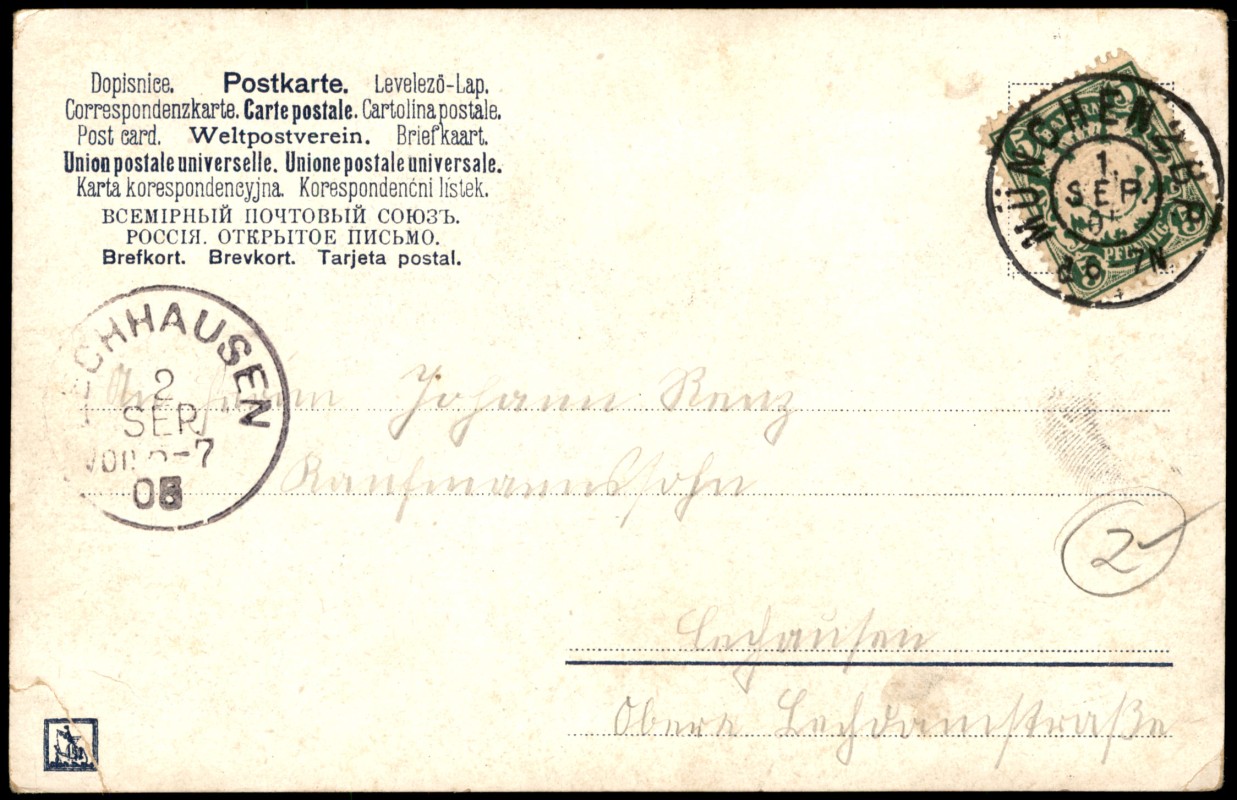 Dopisnice. Postkarte. Levelező-Lap.
Correspondenzkarte. Carte postale. Cartolina postale.
Post card. Weltpostverein. Briefkaart.
Union postale universelle. Unione postale universale.
Karta korespondencyjna. Korespondenćni lístek.
ВСЕМІРНЫЙ ПОЧТОВЫЙ СОЮЗЪ.
РОССІЯ. ОТКРЫТОЕ ПИСЬМО.
Brefkort. Brevkort. Tarjeta postal.
5 BAYERN 5
5 PFENNIG 5
MÜNCHEN 2 B.P.
1.
SEP.
7N
CHHAUSEN
2
SEP
7
An Herrn Johann Renz
Kaufmannssohn
2
Lechausen
Obere Lechdamstraße